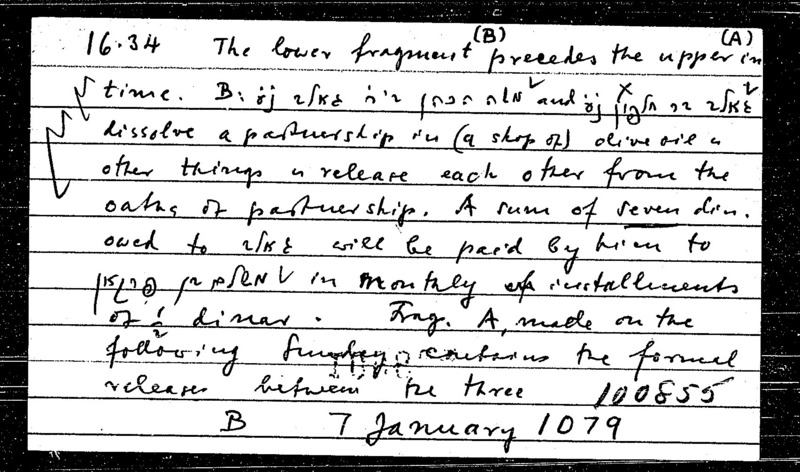 (B) (A)
16.34 The lower fragment precedes the upper in
time. B: and
dissolve a partnership in (a shop of) olive oil &
other things & release each other from the
oaths of partnership. A sum of seven din.
owed to will be paid by him to
in monthly installments
of ½ dinar. Frag. A, made on the
following Sunday contains the formal
releases between the three 100855
B 7 January 1079